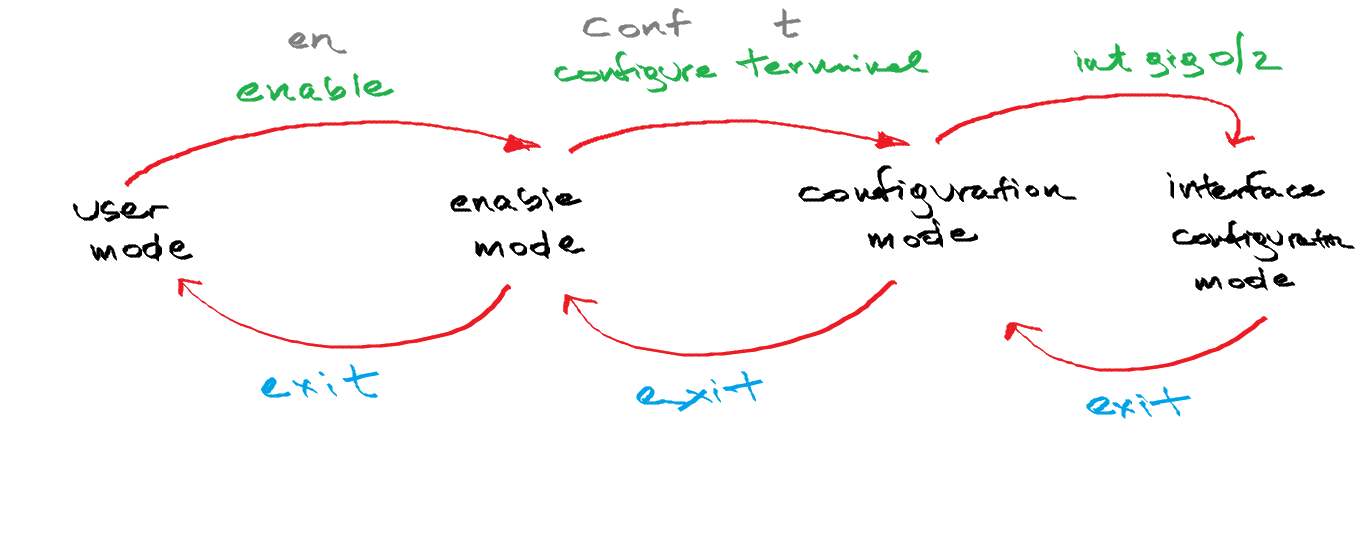 en
conf t
enable
configure terminal
int gig 0/2
user
mode
enable
mode
configuration
mode
interface
configuration
mode
exit
exit
exit